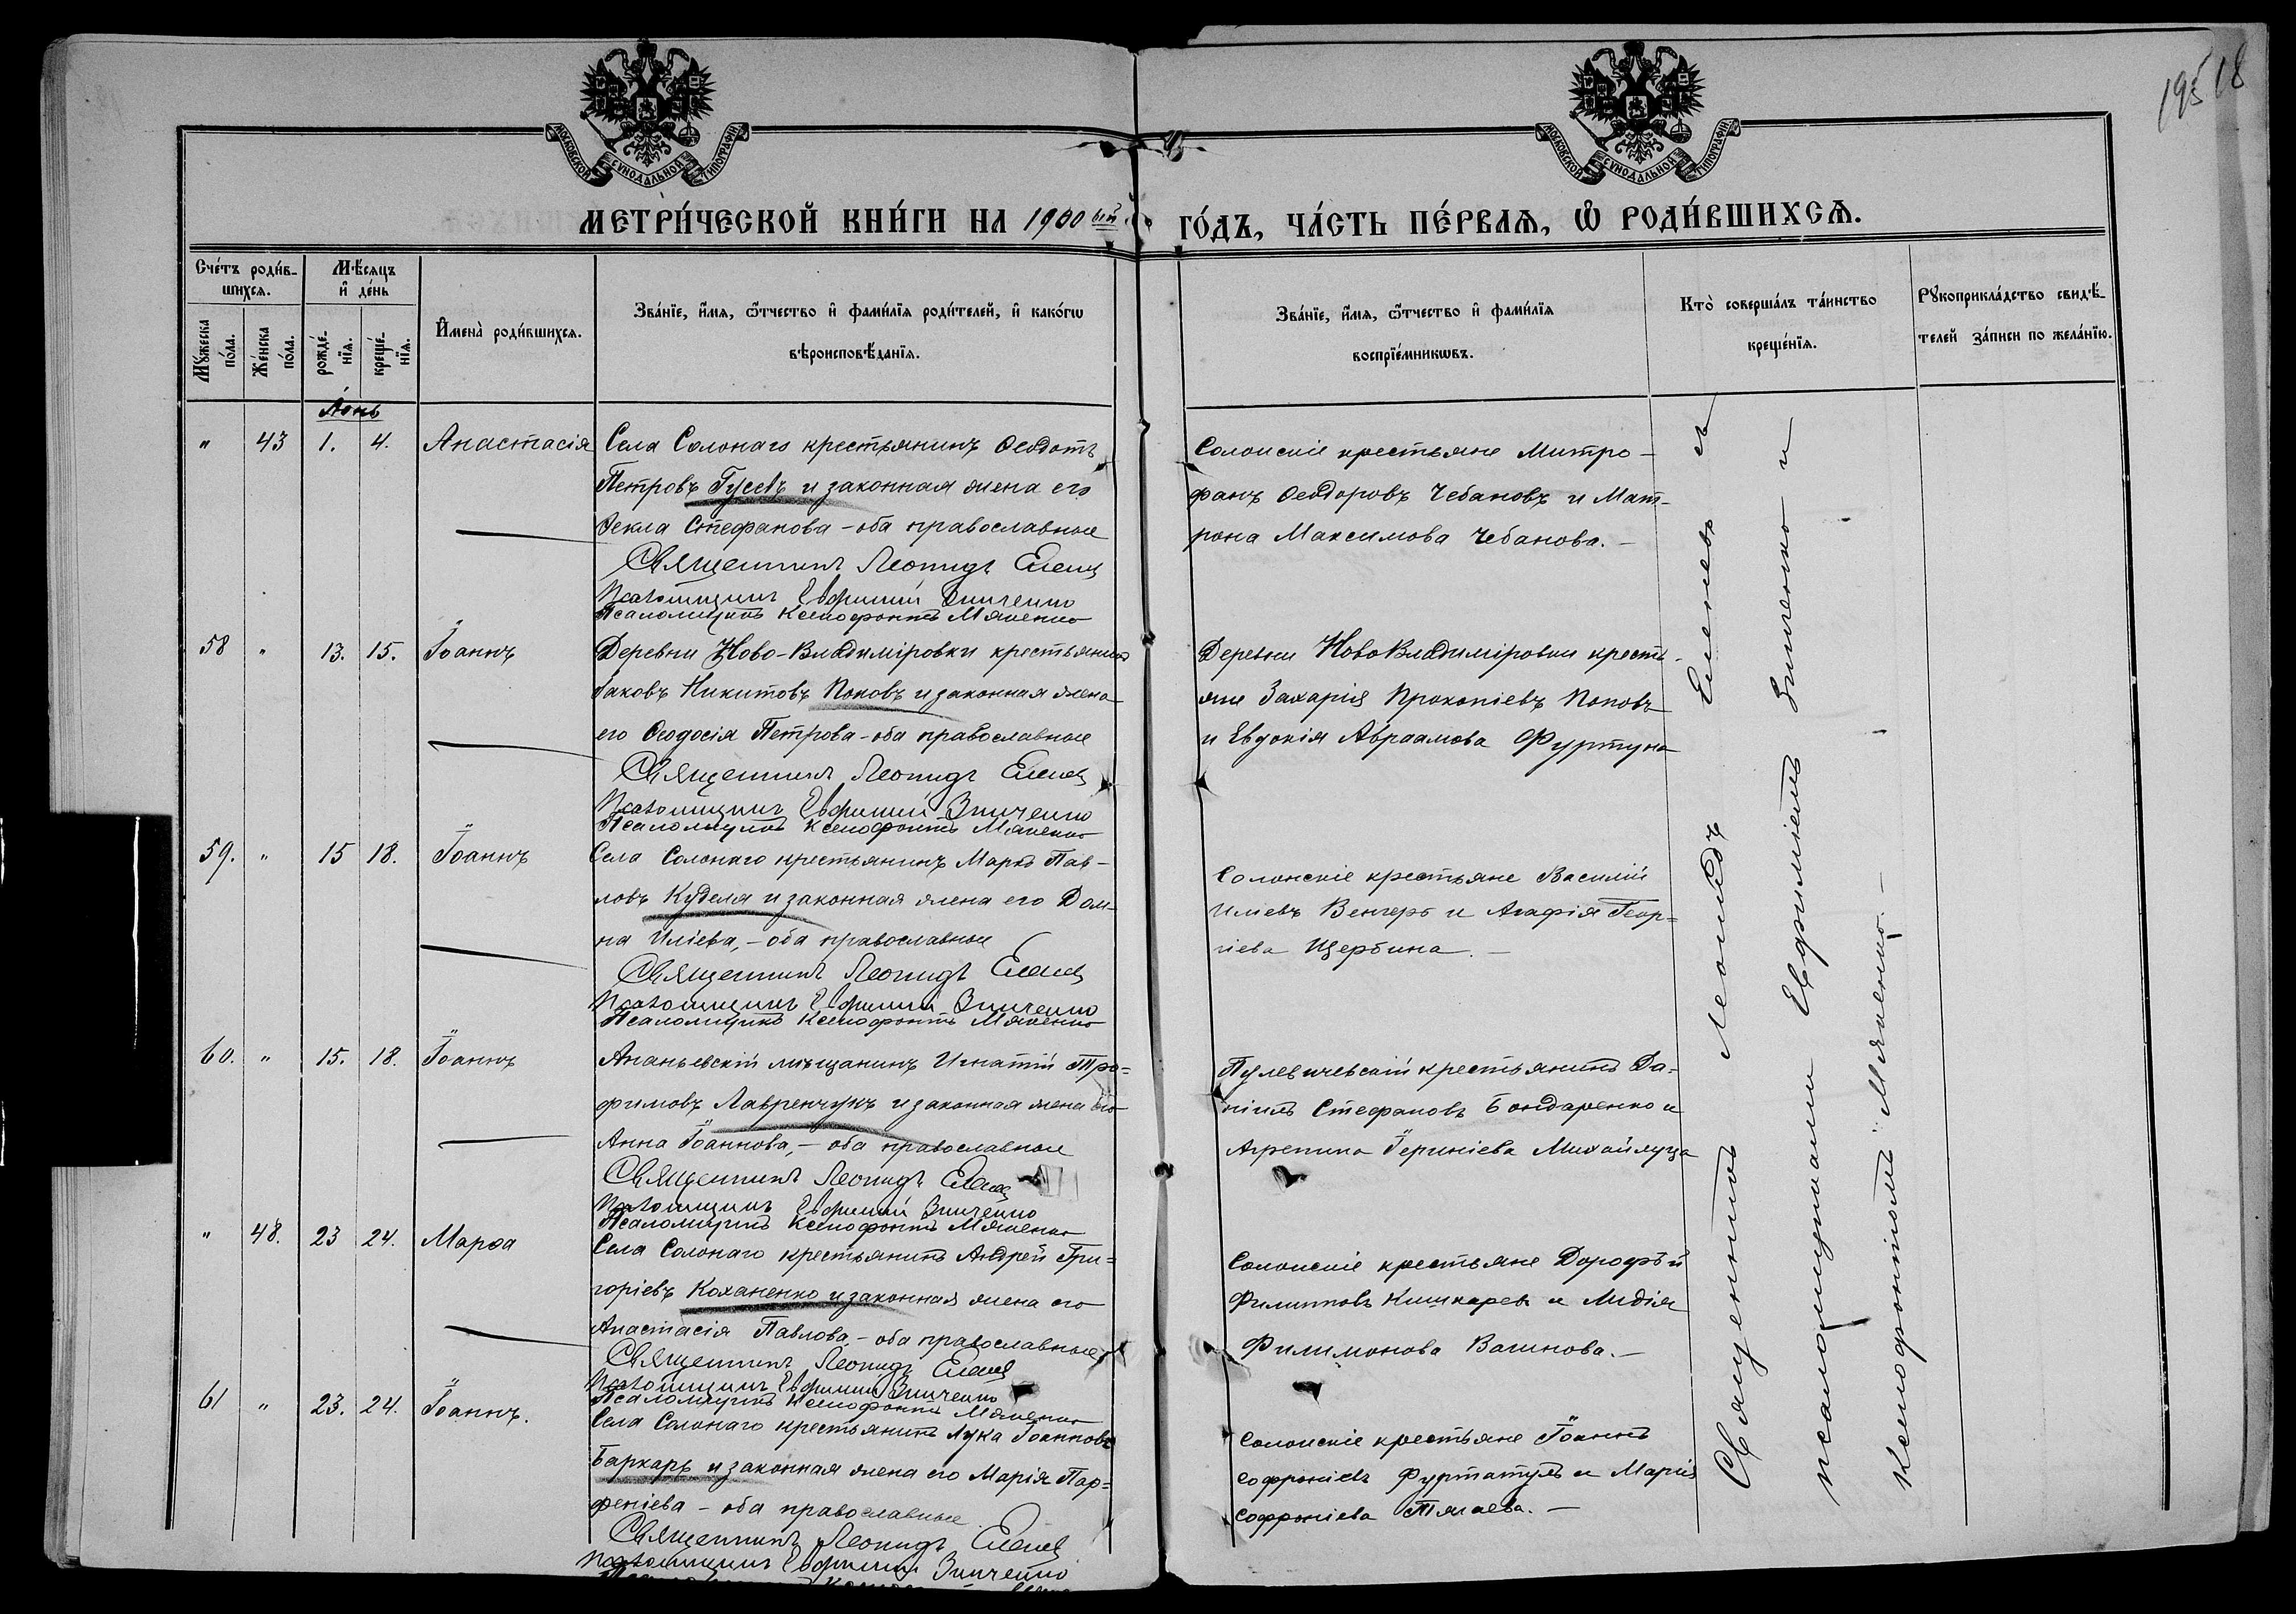 195 18
МОСКОВСКОЙ СѴНОДАЛЬНОЙ ТИПОГРАФІИ.
МОСКОВСКОЙ СѴНОДАЛЬНОЙ ТИПОГРАФІИ.
МЕТРИ́ЧЕСКОЙ КНИ́ГИ НА 1900 ый ГО́ДЪ, ЧА́СТЬ ПЕ́РВАѦ, Ѽ РОДИ́ВШИХСѦ.
Сче́тъ роди́в-
шихсѧ.
Мѣ́сѧцъ
и҆ де́нь
Мꙋ́жеска
по́ла.
Же́нска
по́ла.
рожде́-
нїѧ.
креще́-
нїѧ.
И҆мена̀ роди́вшихсѧ.
Зва́нїе, и҆́мѧ, ѻ҆́тчество и҆ фами́лїѧ роди́телей, и҆ како́гѡ
вѣроисповѣ́данїѧ.
Зва́нїе, и҆́мѧ, ѻ҆́тчество и҆ фами́лїѧ
воспрїе́мникѡвъ.
Кто̀ соверша́лъ та́инство
креще́нїѧ.
Рꙋкоприкла́дство свидѣ́-
телей за́писи по жела́нїю.
Іюнь
" 43 1. 4. Анастасія
Села Солонаго крестьянинъ Ѳеодотъ
Петровъ Гусевъ и законная жена его
Ѳекла Стефанова - оба православные
Священникъ Леонидъ Еленевъ
Псаломщикъ Евфимий Зинченко
Псаломщикъ Ксенофонтъ Мяченко
Солонскіе крестьяне Митро-
фанъ Ѳеодоровъ Чебановъ и Мат-
рона Максимова Чебанова. -
58 " 13. 15. Іоаннъ
Деревни Ново-Владиміровки крестьянинъ
Іаковъ Никитовъ Поповъ и законная жена
его Ѳеодосія Петрова - оба православные
Священникъ Леонидъ Еленевъ
Псаломщикъ Евфимий Зинченко
Псаломщикъ Ксенофонтъ Мяченко
Деревни НовоВладиміровки кресть-
яне Захарія Прокопіевъ Поповъ
и Евдокія Авраамова Фуртуна
59. " 15 18. Іоаннъ
Села Солонаго крестьянинъ Марко Пав-
ловъ Куделя и законная жена его Дом-
на Иліева, - оба православные
Священникъ Леонидъ Еленевъ
Псаломщикъ Евфимий Зинченко
Псаломщикъ Ксенофонтъ Мяченко
Солонскіе крестьяне Василій
Иліевъ Венгеръ и Агафія Геор-
гіева Щербина. -
60. " 15. 18. Іоаннъ
Ананьевскій мѣщанинъ Игнатій Тро-
фимовъ Лавренчукъ и законная жена его
Анна Іоаннова, - оба православные
Священникъ Леонидъ Еленевъ
Псаломщикъ Евфимий Зинченко
Псаломщикъ Ксенофонтъ Мяченко
Пулевичевскій крестьянинъ Да-
ніилъ Стефановъ Бондаренко и
Агрепина Михайлуца
" 48. 23 24. Марѳа
Села Солонаго крестьянинъ Андрей Гри-
горіевъ Коханенко и законная жена его
Анастасія Павлова, - оба православные
Священникъ Леонидъ Еленевъ
Псаломщикъ Евфимий Зинченко
Псаломщикъ Ксенофонтъ Мяченко
Солонскіе крестьяне Дорофѣй
Филипповъ Кишкаревъ и Лидія
Филимонова Вагинова. -
61 " 23. 24. Іоаннъ.
Села Солонаго крестьянинъ Лука Іоанновъ
Баркаръ и законная жена его Марія Пар-
феніева - оба православные
Священникъ Леонидъ Еленевъ
Псаломщикъ Евфимий Зинченко
Солонскіе крестьяне Іоаннъ
Софроніевъ и Марія
Софроніева Тягаева. -
Священникъ Леонидъ Еленевъ съ
псаломщиками Евфиміемъ Зинченко и
Ксенофонтомъ Мяченко. -